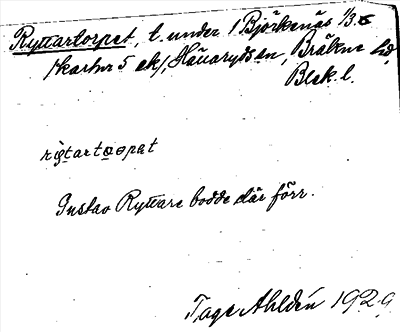 Ryttartorpet, t. under 1 Björkenäs 1/3
1 kartnr 5 ek/, Hallaryds sn, Bräkne hd,
Blek. l.
rytartorpet
Gustav Ryttare bodde där förr.
Tage Ahldén 1929